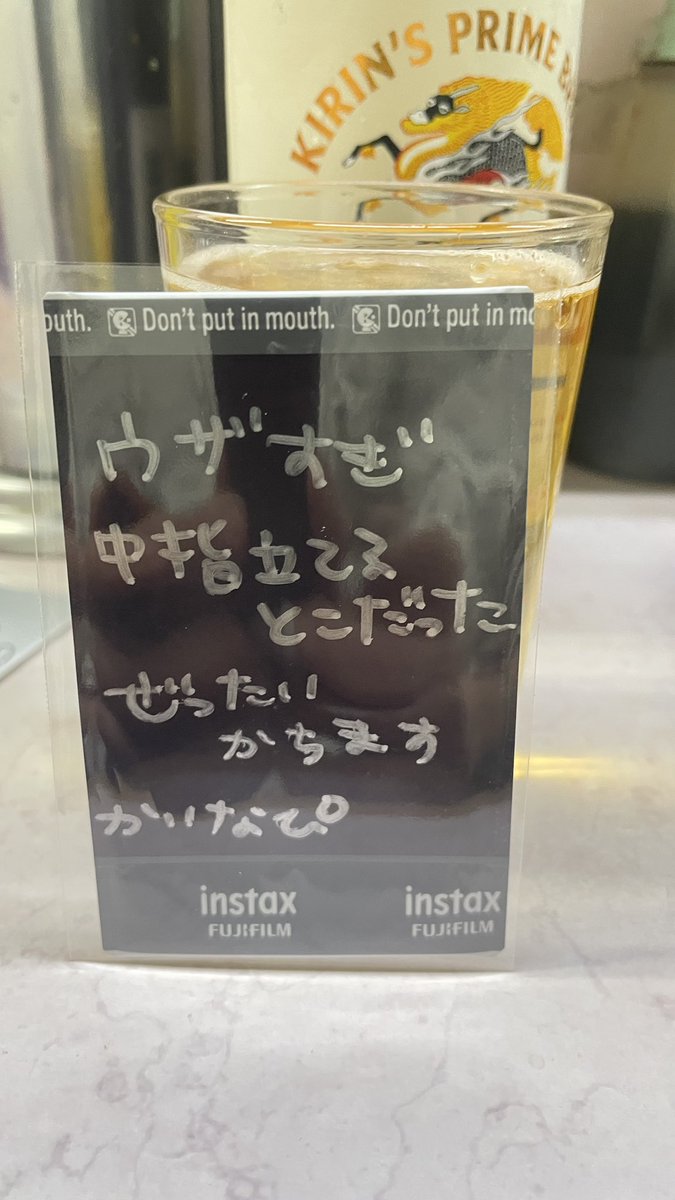 KIRIN'S PRIME B
outh. Don't put in mouth. Don't put in mo
ウザすぎ
中指立てる
とこだった
ぜったい
かちます
かいなぴ
instax instax
FUJIFILM FUJIFILM